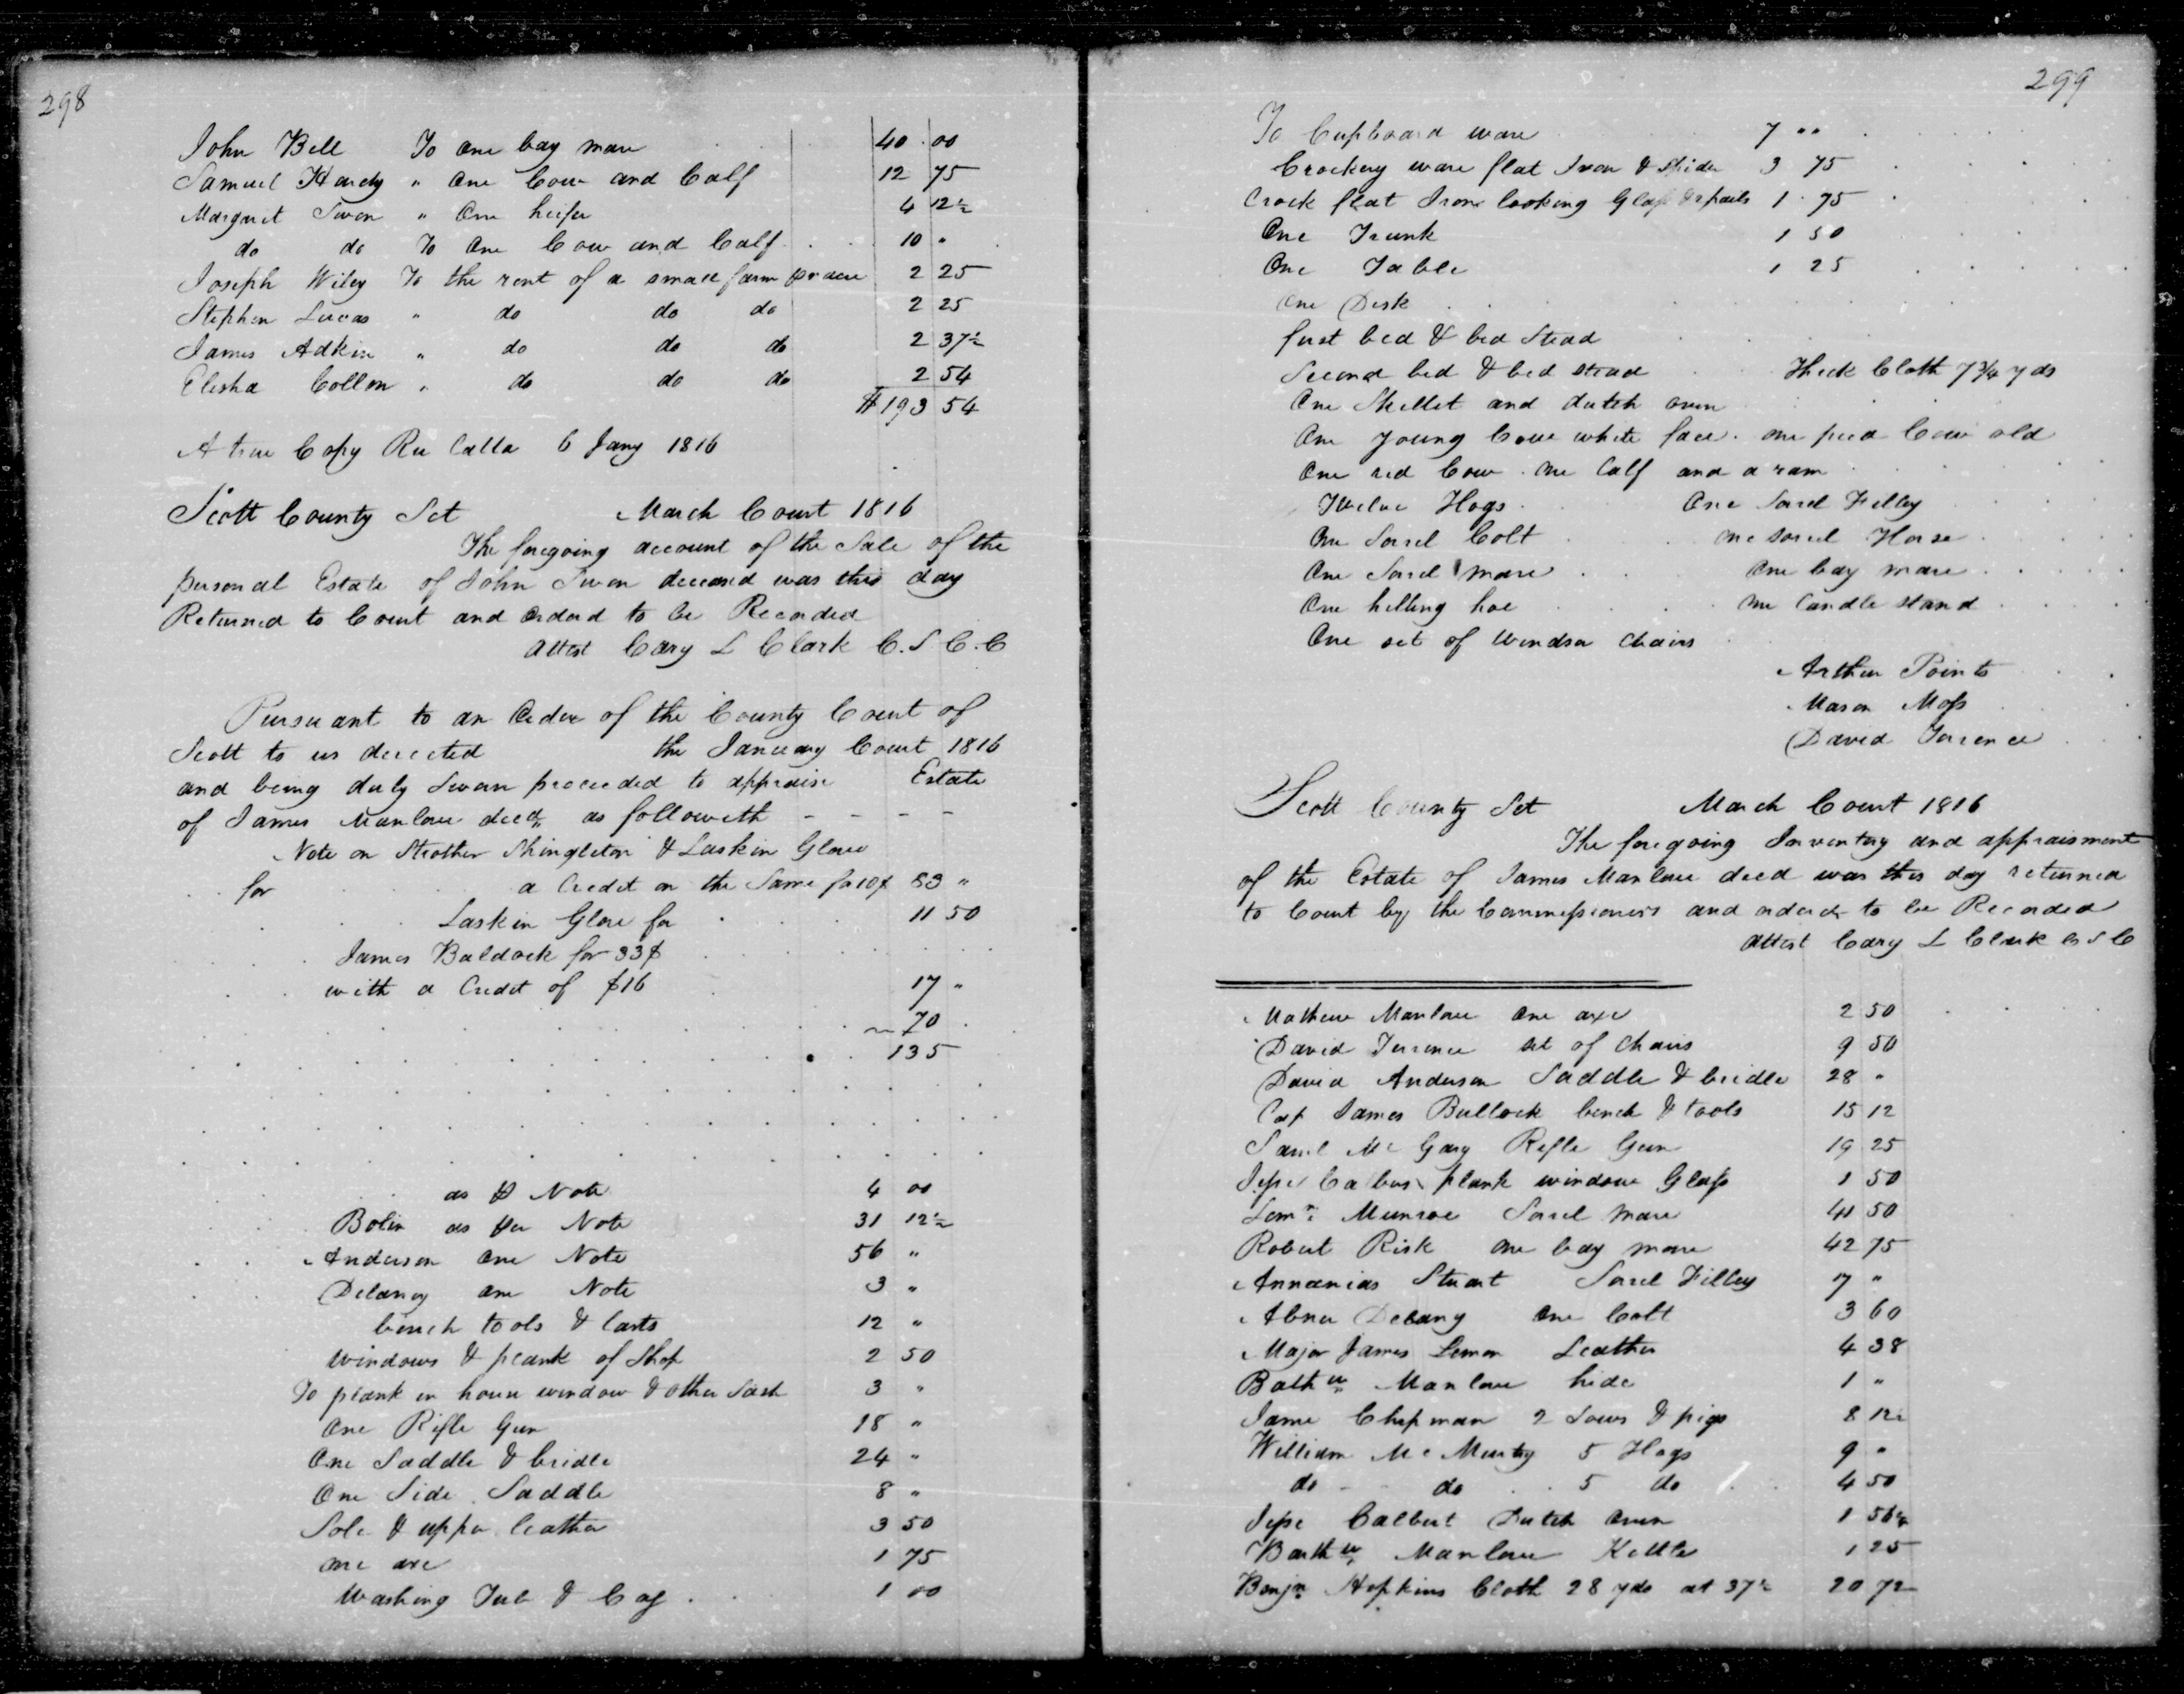 298
John Bell To one bay mare 40 00
Samuel Hardy " One Cow and Calf 12 75
Margaret Swon " One heifer 4 12½
do do To One Cow and Calf 10 "
Joseph Wiley To the rent of a small farm pr acre 2 25
Stephen Lucas " do do do 2 25
James Adkin " do do do 2 37½
Elisha Collon " do do do 2 54
$193 54
A true Copy Ru Catta 6 Jany 1816
Scott County Sct March Court 1816
The foregoing account of the Sale of the
personal Estate of John Swon deceased was this day
Returned to Court and Ordered to be Recorded
attest Cary L Clark C.S C.C
Pursuant to an Order of the County Court of
Scott to us directed the January Court 1816
and being duly Sworn proceeded to appraise Estate
of James Manlove decd as followeth - - - -
Note on Strother Shingleton & Laskin Glove
for a Credit on the Same for 10$ 83 "
Laskin Glove for 11 50
James Baldock for 33$
with a Credit of $16 17 "
70
135
as pr Note 4 00
Bolin as per Note 31 12½
Anderson one Note 56 "
Delaney one Note 3 "
bench tools & lasts 12 "
Windows & plank of Shop 2 50
To plank in house window & other Sash 3 "
One Rifle Gun 18 "
One Saddle & bridle 24 "
One Side Saddle 8 "
Sole & upper leather 3 50
one axe 1 75
Washing Tub & Cag 1 00
299
To Cupboard ware 7 "
Crockery ware flat Iron & Spider 3 75
Crock flat Irons looking Glass & pails 1 75
One Trunk 1 50
One Table 1 25
One Desk
first bed & bed Stead
Second bed & bed stead Thick Cloth 7¾ yds
One Skillet and dutch oven
One young Cow white face. one pied Cow old
One red Cow. one Calf and a ram
Twelve Hogs One Sorel Filley
One Sorrel Colt one sorrel Horse
One Sorel mare One bay mare
One hilling hoe one Candle stand
One set of Windsor Chairs
Arthur Points
Mason Moss
David Torence
Scott County Sct March Court 1816
The foregoing Inventory and appraisment
of the Estate of James Manlove decd was this day returned
to Court by the Commissioners and ordered to be Recorded
attest Cary L Clark C S C
Mathew Manlove One axe 2 50
David Torrence set of Chairs 9 50
David Anderson Saddle & bridle 28 "
Cap James Bullock bench & tools 15 12
Saml Mc Gary Rifle Gun 19 25
Jesse Calbus plank window Glass 1 50
Munroe Sorrel mare 41 50
Robert Risk one bay mare 42 75
Annanias Stuart Sorrel Filley 7 "
Abner Delany One Colt 3 60
Major James Lemon Leather 4 38
Bathw Manlove hide 1 "
Jame Chipman 2 Sows & pigs 8 12½
William Mc Murtry 5 Hogs 9 "
do do 5 do 4 50
Jesse Calbert Dutch Oven 1 56¼
Barthw Manlove Kettle 1 25
Benjn Hopkins Cloth 28 yds at 37½ 20 72